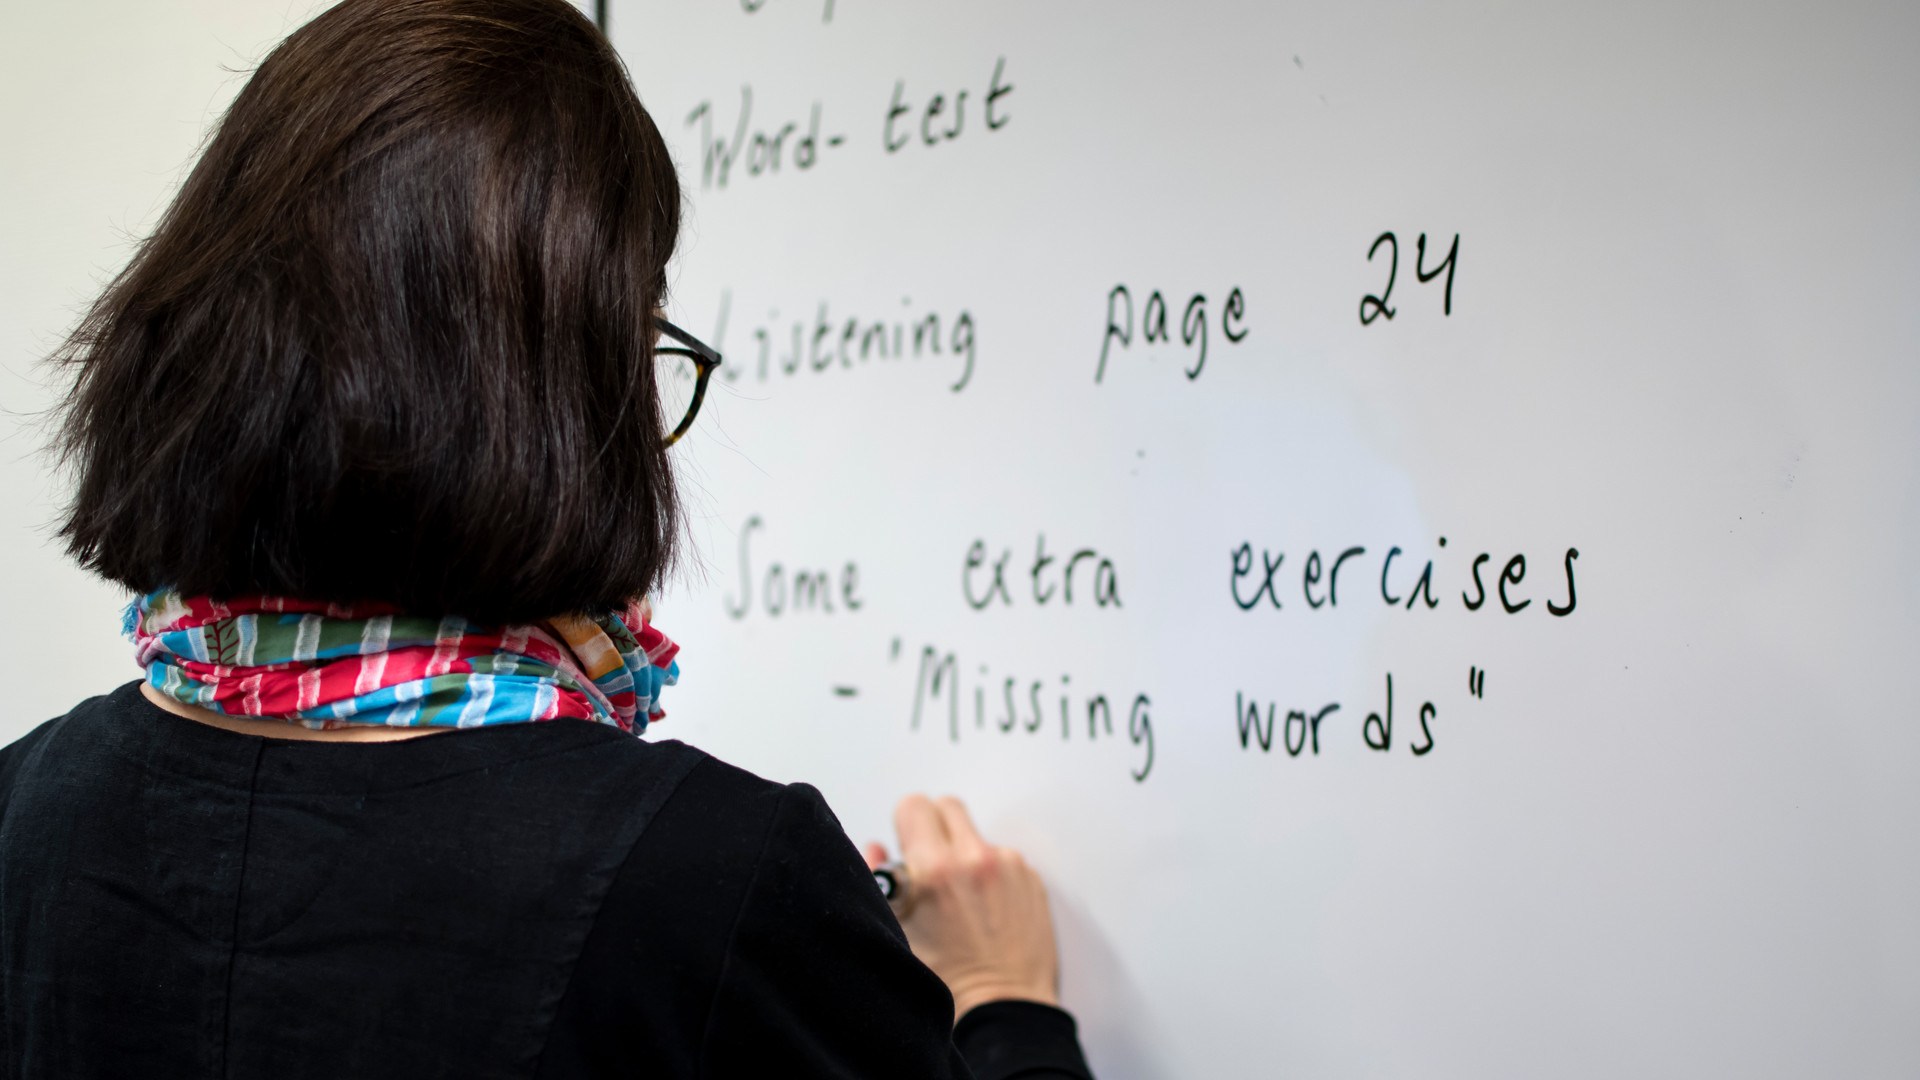 Word-test
Listening page 24
Some extra exercises
- "Missing words"